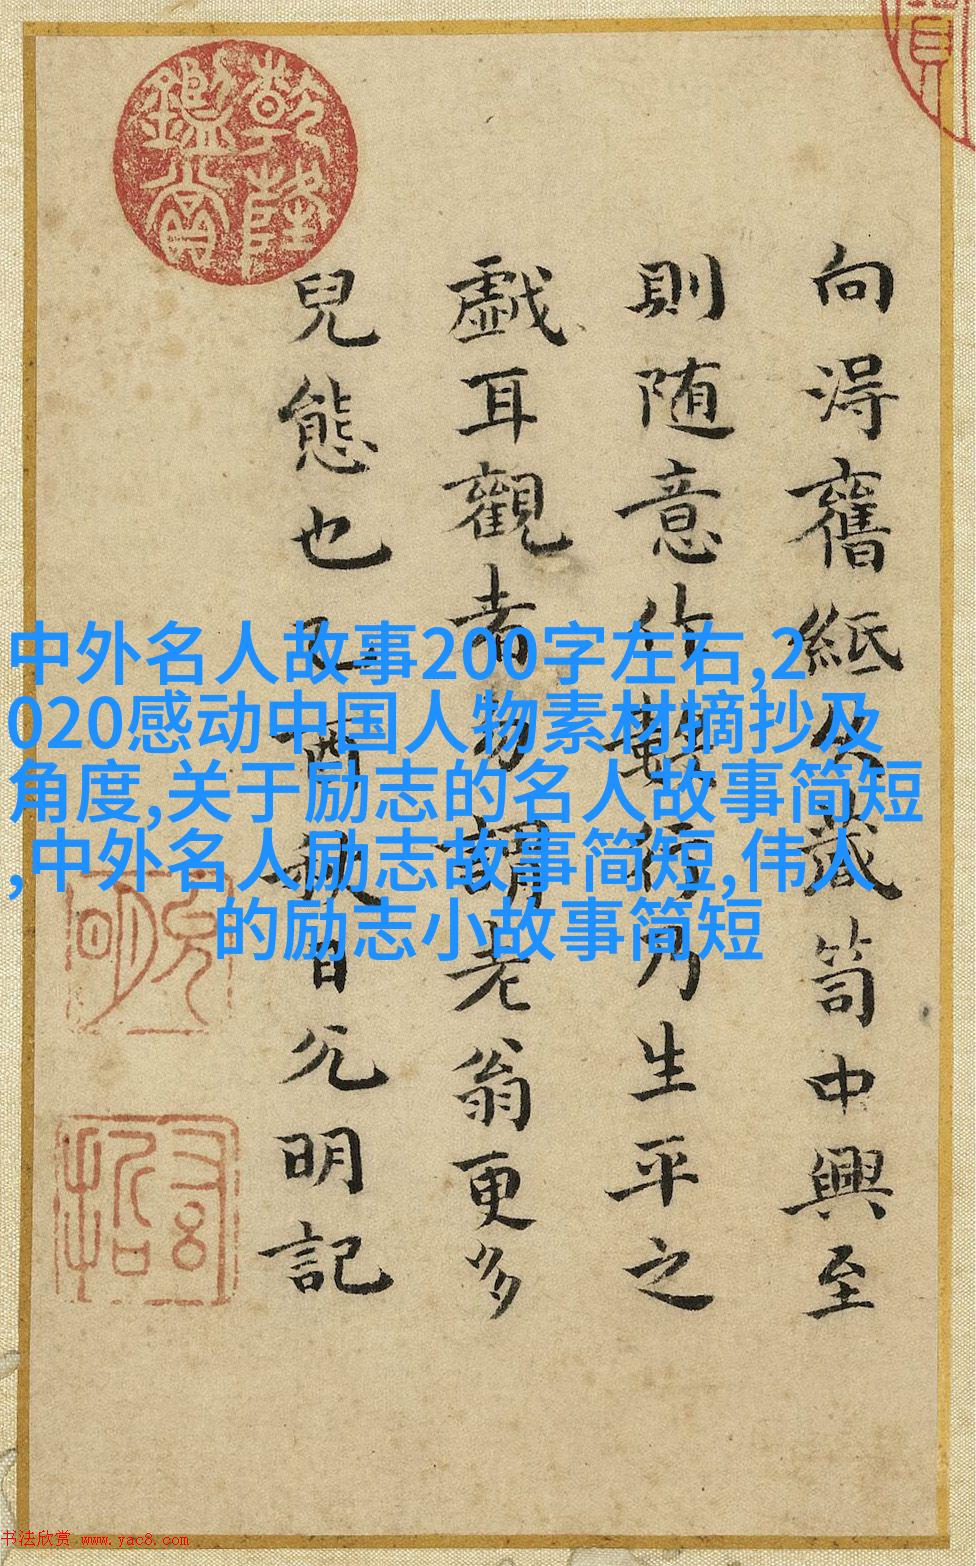 乾隆鑑賞
向得舊紙久藏笥中興至
則随意作數行乃生平之
戯耳觀者勿謂老翁更多
兒態也乙酉秋日允明記
中外名人故事200字左右,2
020感动中国人物素材摘抄及
角度,关于励志的名人故事简短
,中外名人励志故事简短,伟人
的励志小故事简短
允明
书法欣赏 www.yac8.com